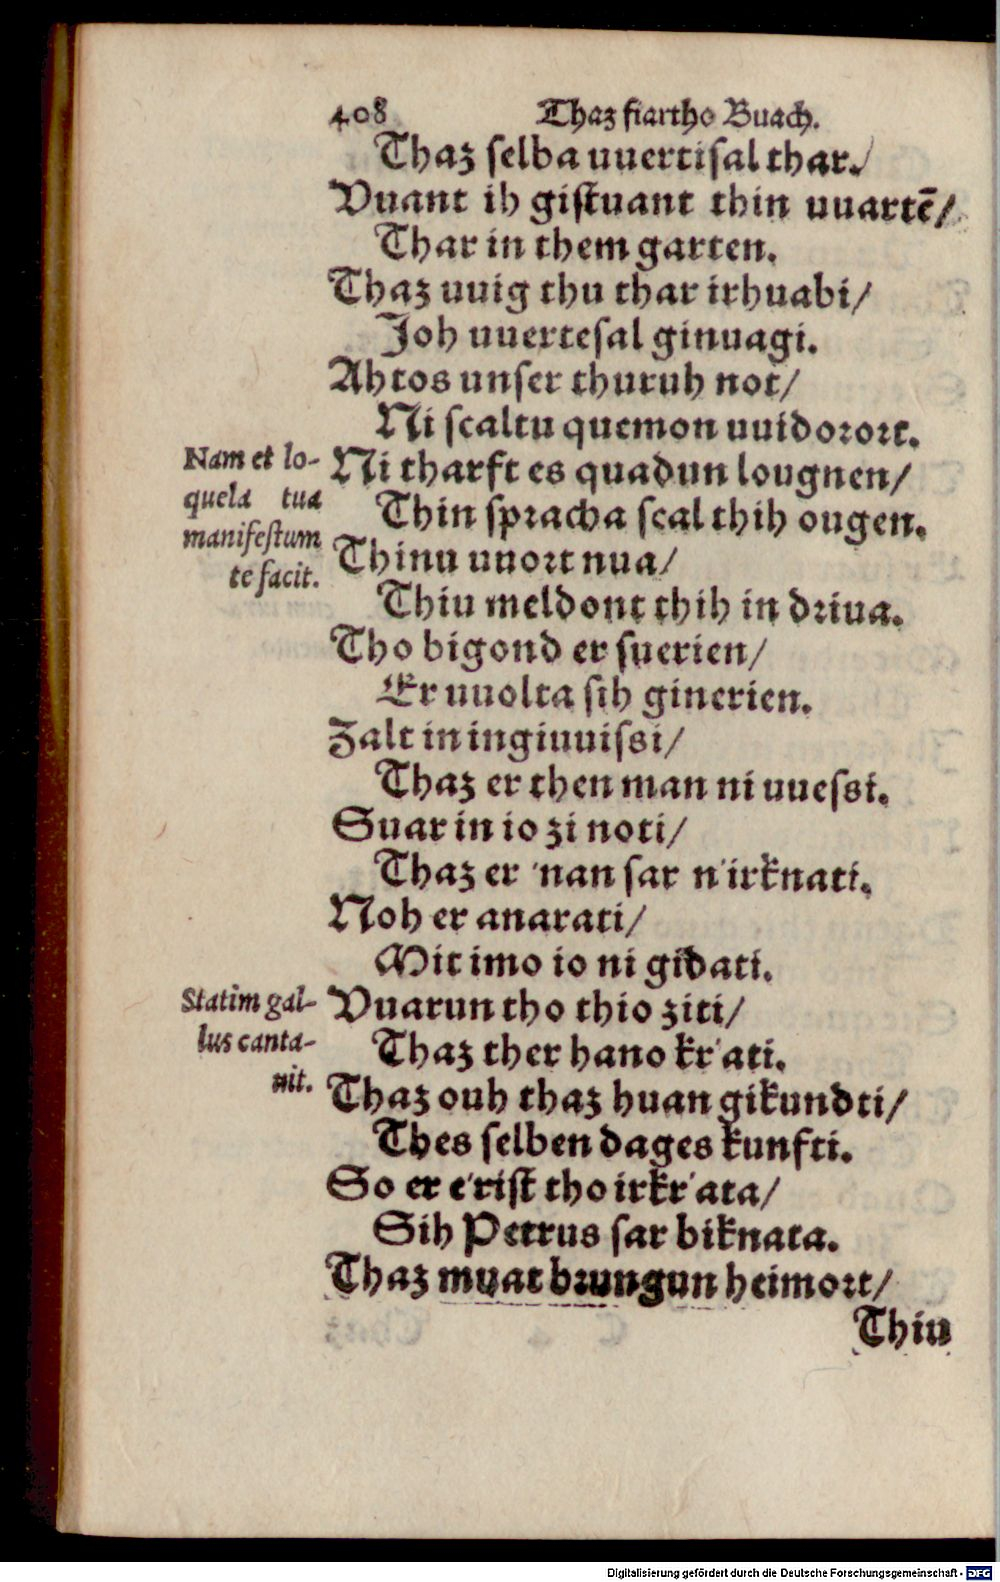 408 Thaz fiartho Buach.
Thaz ſelba uuertiſal thar./
Vuant ih giſtuant thin uuartē/
Thar in them garten.
Thaz uuig thu thar irhuabi/
Joh uuerteſal ginuagi.
Ahtos unſer thuruh not/
Ni ſcaltu quemon uuidorort.
Ni tharft es quadun lougnen/
Thin ſpracha ſcal thih ougen.
Thinu uuort nua/
Thiu meldont thih in driua.
Tho bigond er ſuerien/
Er uuolta ſih ginerien.
Zalt in ingiuuiſsi/
Thaz er then man ni uueſsi.
Suar in io zi noti/
Thaz er 'nan ſar n'irknati.
Noh er anarati/
Mit imo io ni gidati.
Vuarun tho thio ziti/
Thaz ther hano kr'ati.
Thaz ouh thaz huan gikundti/
Thes ſelben dages kunfti.
So er e'riſt tho irkr'ata/
Sih Petrus ſar biknata.
Thaz muat brungun heimort/
Thiu
Nam et lo-
quela tua
manifeſtum
te facit.
Statim gal-
lus canta-
uit.
Digitalisierung gefördert durch die Deutsche Forschungsgemeinschaft - DFG